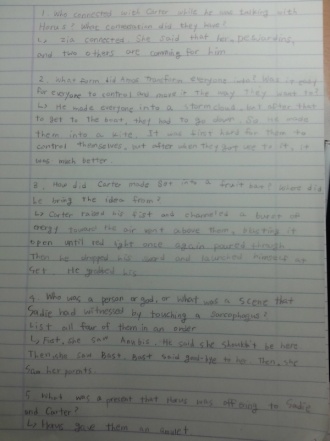 1. Who connected with Carter while he was talking with
Horus? What conversation did they have?
↳ Zia connected. She said that her, Desjardins,
and two others are coming for him
2. What form did Horus transform everyone into? Was it
for everyone to control and move it the way they want to?
↳ He made everyone into a storm cloud, but after that
to get to the boat, they had to go down. So he made
them into a kite. It was first hard for them to
control themselves, but after when they got used to it, it
was much better.
3. How did Carter made Set into a fruit bat? Where did
he bring the idea from?
↳ Carter raised his fist and channeled a burst of
energy toward the air vent above them, blasting it
open until red light once again poured through
Then he dropped his sword and launched himself at
Set. He grabbed his
4. Who was a person or god, or what was a scene that
Sadie had witnessed by touching a sarcophagus?
List all four of them in an order.
↳ First, she saw Anubis. He said she shouldn't be here.
Then she saw Bast. Bast said goodbye to her. Then, she
saw her parents.
5. What was a present that Horus was offering to Sadie
and Carter?
↳ Horus gave them an amulet.